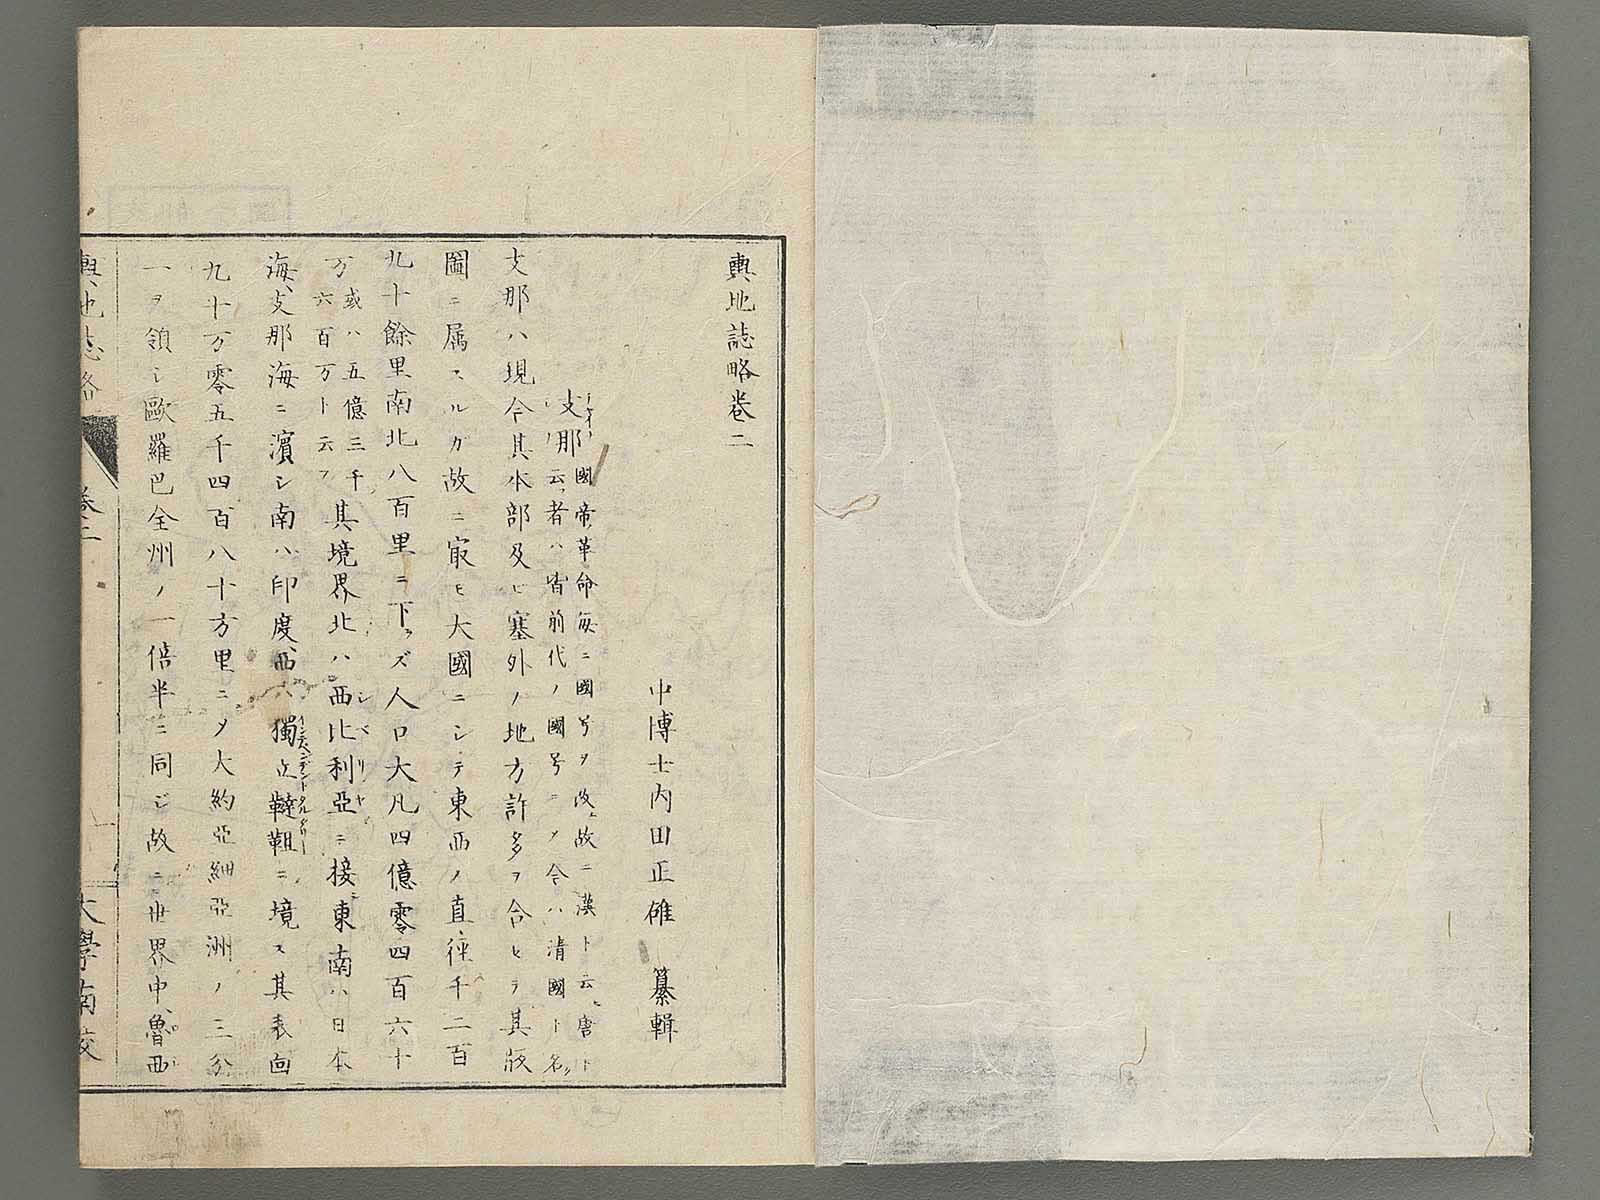 輿地誌略卷二
中博士内田正雄 纂輯
支那 チャイナ 國帝革命毎ニ國号ヲ改ム故ニ漢ト云唐ト
云者ハ皆前代ノ國号ニメ今ハ清國ト名ク
支那ハ現今其本部及ヒ塞外ノ地方許多ヲ合セテ其版
圖ニ属スルガ故ニ最モ大國ニシテ東西ノ直徑千二百
九十餘里南北八百里ニ下ラズ人口大凡四億零四百六十
万 或ハ五億三千六百万ト云フ 其境界北ハ西比利亞 シベリヤ ニ接シ東南ハ日本
海、支那海ニ濱シ南ハ印度、西ハ獨立韃靼 インデペンデントタルタリー ニ境ス其表面
九十万零五千四百八十方里ニメ大約亞細亞洲ノ三分
一ヲ領シ歐羅巴全州ノ一倍半ニ同ジ故ニ世界中、魯西
輿地誌略 卷二 一 大學南校